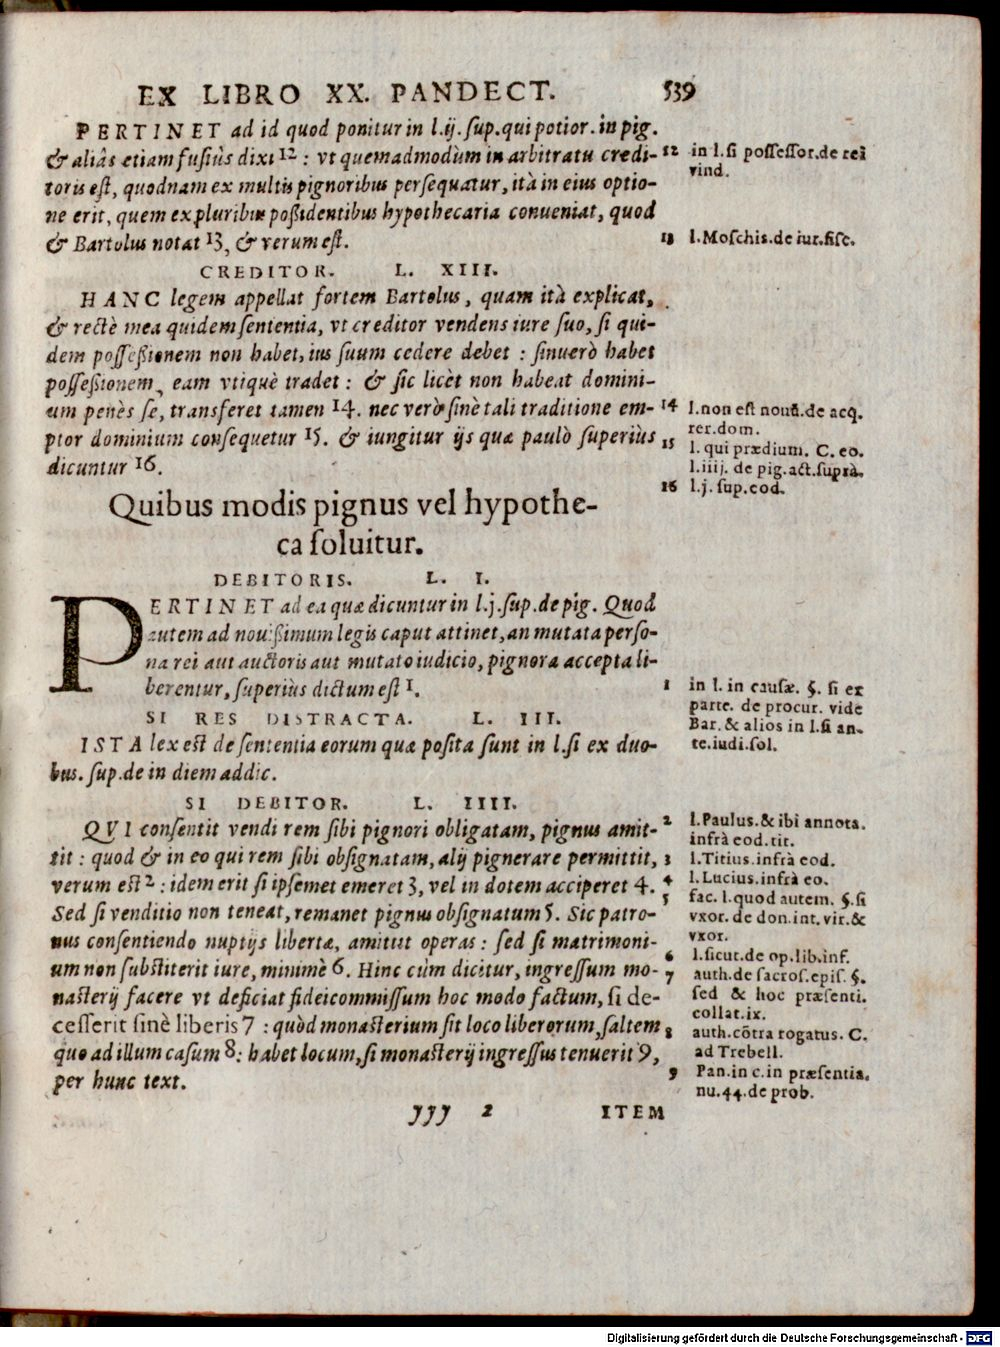 EX LIBRO XX. PANDECT. 539
PERTINET ad id quod ponitur in l.ij. sup. qui potior. in pig.
& aliâs etiam fusiùs dixi 12 : vt quemadmodùm in arbitratu credi-
toris est, quodnam ex multis pignoribus persequatur, ità in eius optio-
ne erit, quem ex pluribus possidentibus hypothecaria conueniat, quod
& Bartolus notat 13, & verum est.
12 in l. si possessor. de rei
vind.
13 l. Moschis. de iur. fisc.
CREDITOR. L. XIII.
HANC legem appellat fortem Bartolus, quam ità explicat,
& rectè mea quidem sententia, vt creditor vendens iure suo, si qui-
dem possessionem non habet, ius suum cedere debet : sinuerò habet
possessionem, eam vtiquè tradet : & sic licèt non habeat domini-
um penès se, transferet tamen 14. nec verò sinè tali traditione em-
ptor dominium consequetur 15. & iungitur ijs quæ paulò superiùs
dicuntur 16.
14 l. non est nouū. de acq.
rer. dom.
15 l. qui prædium. C. eo.
l. iiij. de pig. act. suprà.
16 l. j. sup. eod.
Quibus modis pignus vel hypothe-
ca soluitur.
DEBITORIS. L. I.
PERTINET ad ea quæ dicuntur in l.j. sup. de pig. Quod
autem ad nouissimum legis caput attinet, an mutata perso-
na rei aut auctoris aut mutato iudicio, pignora accepta li-
berentur, superiùs dictum est 1.
1 in l. in causæ. §. si ex
parte. de procur. vide
Bar. & alios in l. si an-
te. iudi. sol.
SI RES DISTRACTA. L. III.
ISTA lex est de sententia eorum quæ posita sunt in l. si ex duo-
bus. sup. de in diem addic.
SI DEBITOR. L. IIII.
QVI consentit vendi rem sibi pignori obligatam, pignus amit-
tit : quod & in eo qui rem sibi obsignatam, alij pignerare permittit,
verum est 2 : idem erit si ipsemet emeret 3, vel in dotem acciperet 4.
Sed si venditio non teneat, remanet pignus obsignatum 5. Sic patro-
nus consentiendo nuptijs libertæ, amittit operas : sed si matrimoni-
um non substiterit iure, minimè 6. Hinc cùm dicitur, ingressum mo-
nasterij facere vt deficiat fideicommissum hoc modo factum, si de-
cesserit sinè liberis 7 : quòd monasterium sit loco liberorum, saltem
quo ad illum casum 8 : habet locum, si monasterij ingressus tenuerit 9,
per hunc text.
2 l. Paulus. & ibi annota.
infrà eod. tit.
3 l. Titius. infrà eod.
4 l. Lucius. infrà eo.
5 fac. l. quod autem. §. si
vxor. de don. int. vir. &
vxor.
6 l. sicut. de op. lib. inf.
7 auth. de sacros. epis. §.
sed & hoc præsenti.
collat. ix.
8 auth. cōtra rogatus. C.
ad Trebell.
9 Pan. in c. in præsentia.
nu. 44. de prob.
yyy 2 ITEM
Digitalisierung gefördert durch die Deutsche Forschungsgemeinschaft - DFG